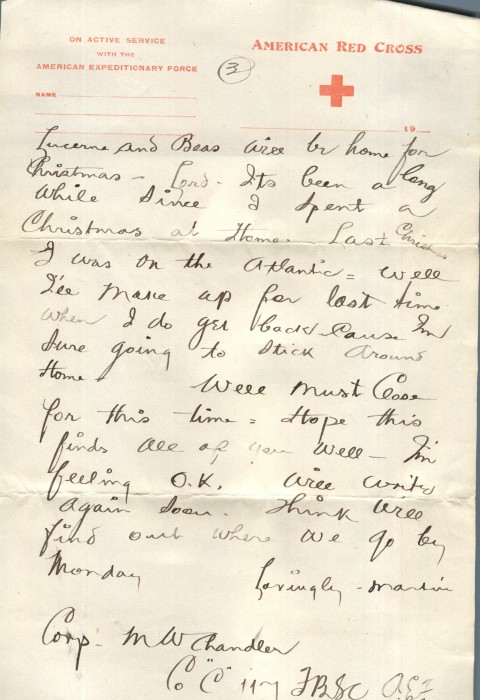 ON ACTIVE SERVICE
WITH THE
AMERICAN EXPEDITIONARY FORCE
NAME
3
AMERICAN RED CROSS
19
Lucerne and Beas Will be home for
Christmas - Lord - Its been a long
while since I spent a
Christmas at Home. Last Christmas
I was on the Atlantic = Well
I'll make up for lost time
when I do get back Cause I'm
sure going to stick Around
Home - Well Must Close
for this time = Hope this
finds all of you well - I'm
feeling O.K. Will write
again soon. Think Will
find out where we go by
Monday Lovingly - Martin
Corp. M W Chandler
Co "C" 117 F.B.SC A.E.F